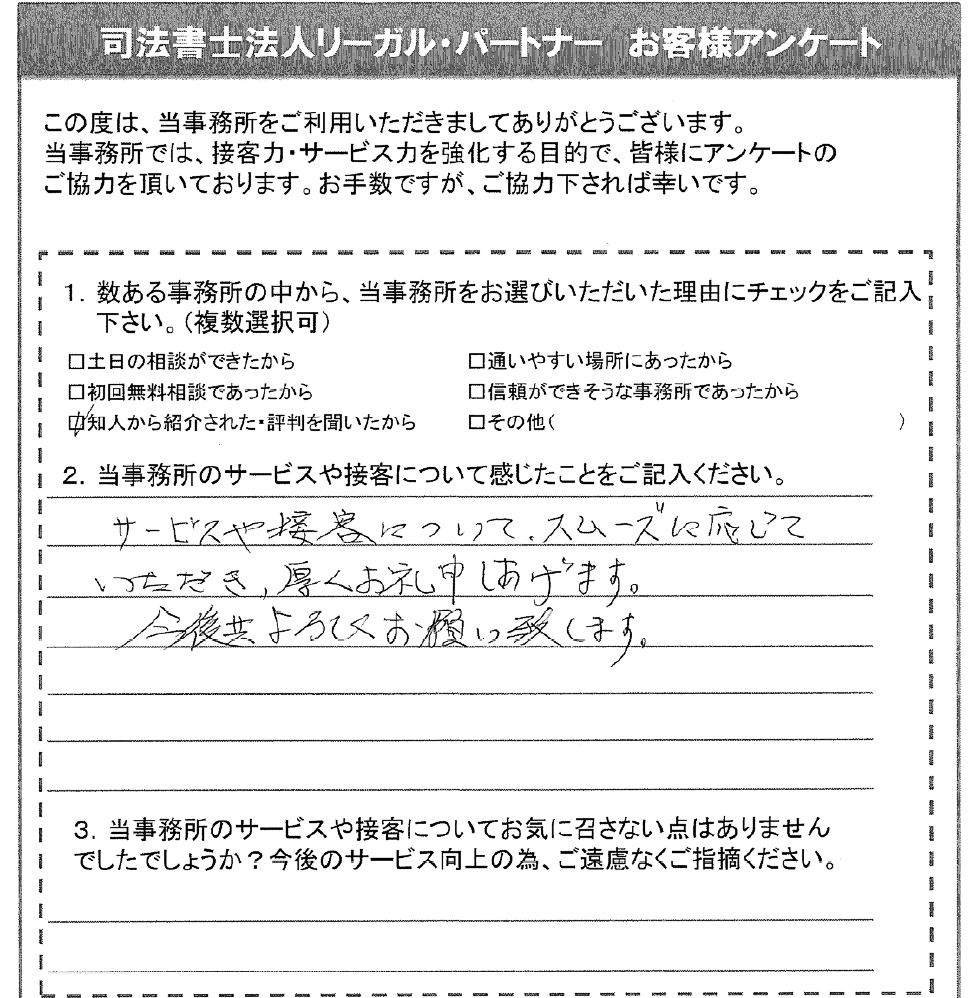 司法書士法人リーガル・パートナー　お客様アンケート
この度は、当事務所をご利用いただきましてありがとうございます。
当事務所では、接客力・サービス力を強化する目的で、皆様にアンケートの
ご協力を頂いております。お手数ですが、ご協力下されば幸いです。
1. 数ある事務所の中から、当事務所をお選びいただいた理由にチェックをご記入
下さい。(複数選択可)
□土日の相談ができたから　□通いやすい場所にあったから
□初回無料相談であったから　□信頼ができそうな事務所であったから
☑知人から紹介された・評判を聞いたから　□その他(　)
2. 当事務所のサービスや接客について感じたことをご記入ください。
サービスや接客について、スムーズに応じて
いただき、厚くお礼申しあげます。
今後共よろしくお願い致します。
3. 当事務所のサービスや接客についてお気に召さない点はありません
でしたでしょうか?今後のサービス向上の為、ご遠慮なくご指摘ください。